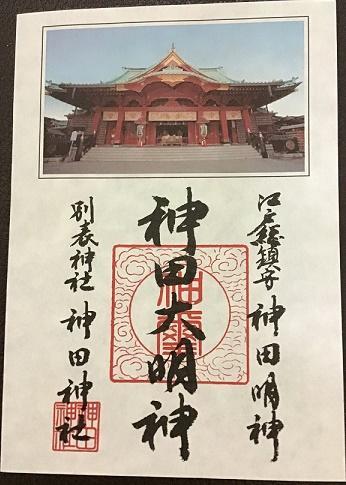 江戸総鎮守 神田明神
神田大明神
別表神社 神田神社
神璽